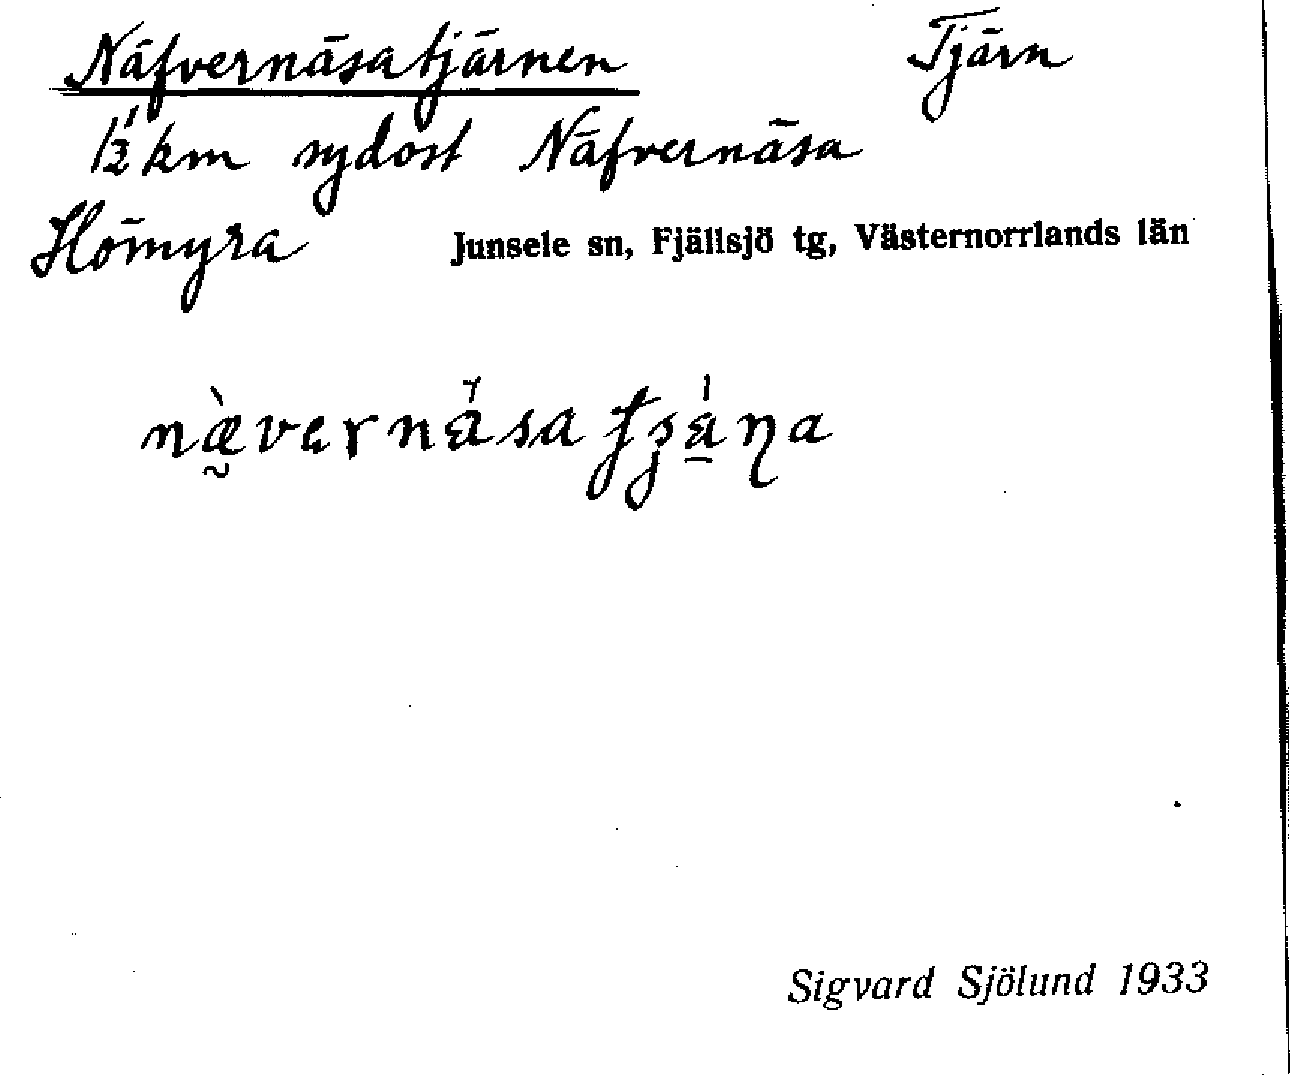 Näfvernäsatjärnen Tjärn
1½ km sydost Näfvernäsa
Hömyra Junsele sn, Fjällsjö tg, Västernorrlands län
Sigvard Sjölund 1933